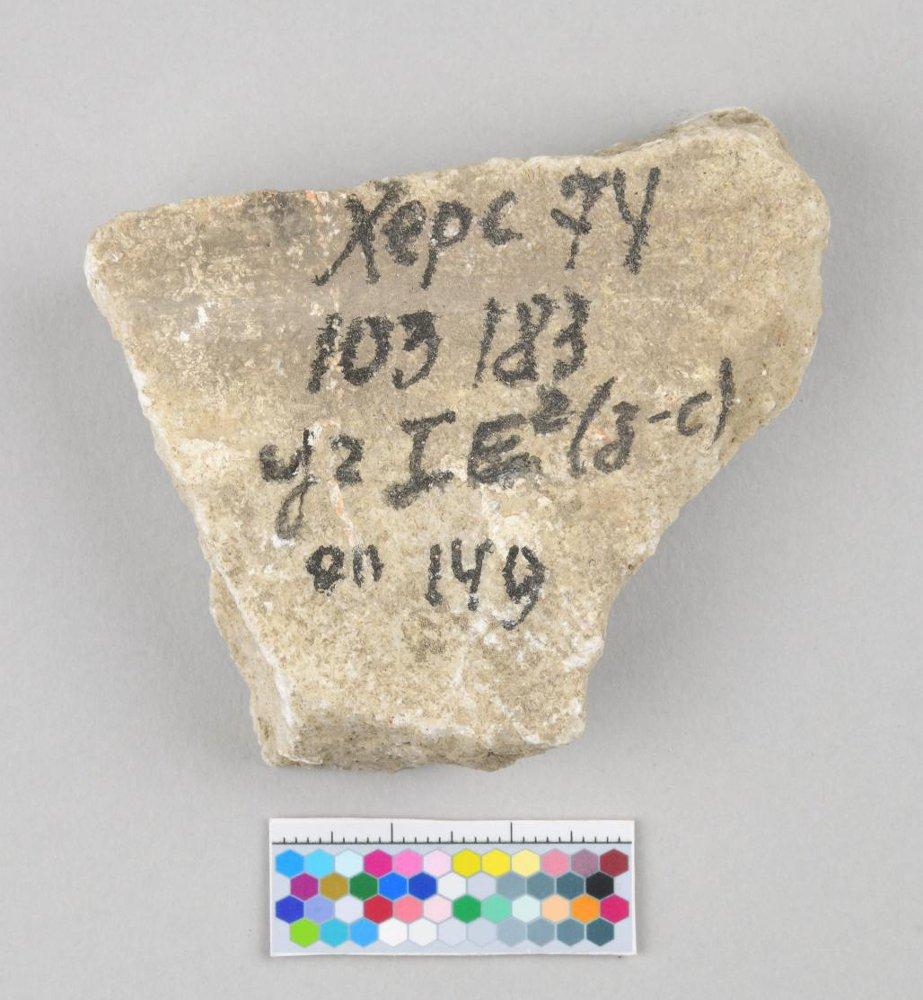 Херс 74
103 183
уг I E² (з-с)
оп 149